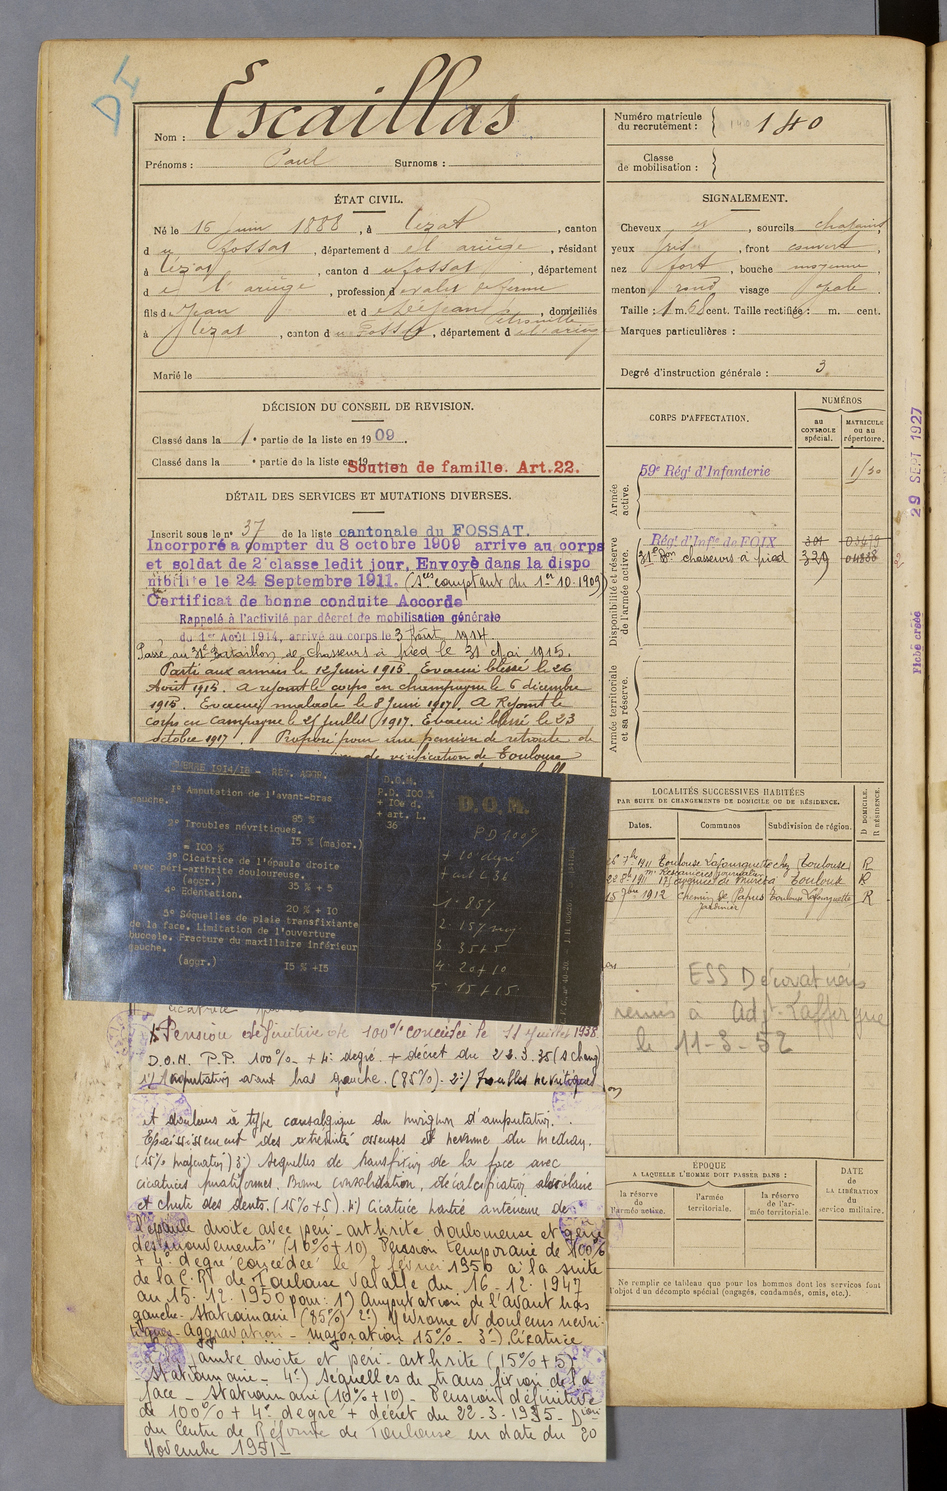 DI
Nom : Escaillas
Prénoms : Paul Surnoms :
Numéro matricule du recrutement : 140
Classe de mobilisation :
ÉTAT CIVIL.
Né le 16 juin 1888, à Lezat, canton
d u fossat, département d e l ariège, résidant
à lézat, canton d u fossat, département
d e l'ariège, profession d valet de ferme
fils de Jean et d e Dejean Pétronille, domiciliés
à lezat, canton d u Fossat, département d e l'ariège
Marié le
SIGNALEMENT.
Cheveux et, sourcils chatains
yeux gris, front couvert,
nez fort, bouche moyenne,
menton rond visage ovale.
Taille : 1 m. 68 cent. Taille rectifiée : m. cent.
Marques particulières :
Degré d'instruction générale : 3
DÉCISION DU CONSEIL DE REVISION.
Classé dans la 1e partie de la liste en 1909.
Classé dans la e partie de la liste en 19
Soutien de famille. Art.22.
DÉTAIL DES SERVICES ET MUTATIONS DIVERSES.
Inscrit sous le n° 37 de la liste cantonale du FOSSAT.
Incorporé à compter du 8 octobre 1909 arrivé au corps
et soldat de 2e classe ledit jour, Envoyé dans la dispo
nibilité le 24 Septembre 1911. (sces comptant du 1er 10.1909)
Certificat de bonne conduite Accordé
Rappelé à l'activité par décret de mobilisation générale
du 1er Août 1914, arrivé au corps le 3 Août 1914.
Passé au 31e Bataillon de Chasseurs à pied le 31 Mai 1915.
Parti aux armées le 12 Juin 1915. Evacué blessé le 26
Août 1915. A rejoint le corps en champagne le 6 décembre
1915. Evacué malade le 8 Juin 1917. A Rejoint le
corps en campagne le 25 Juillet 1917. Evacué blessé le 23
octobre 1917. Proposé pour une pension de retraite de
de vérification de Toulouse
CORPS D'AFFECTATION.
NUMÉROS
au CONTROLE spécial.
MATRICULE ou au répertoire.
Armée active.
59e Régt d'Infanterie
Disponibilité et réserve de l'armée active.
Régt d'Infie de FOIX
31e Bon chasseurs à pied 329
Armée territoriale et sa réserve.
29 SEPT 1927
Fiche créée
LOCALITÉS SUCCESSIVES HABITÉES
PAR SUITE DE CHANGEMENTS DE DOMICILE OU DE RÉSIDENCE.
D DOMICILE. R RÉSIDENCE.
Dates. Communes Subdivision de région.
26 7bre 1911 Toulouse Lafourguette chez (Toulouse) R
22 8bre 1911 avenue de Muret Toulouse R
15 7bre 1912 Chemin de Papus Toulouse Lafourguette R
jardinier
ESS Décorations
remis à Adjt. Laffergue
le 11-3-52
GUERRE 1914/18 - REV. AGGR.
1° Amputation de l'avant-bras
gauche.
85 %
2° Troubles névritiques.
15 % (major.)
= 100 %
3° Cicatrice de l'épaule droite
avec péri-arthrite douloureuse.
(aggr.) 35 % + 5
4° Edentation.
20 % + 10
5° Séquelles de plaie transfixiante
de la face. Limitation de l'ouverture
buccale. Fracture du maxillaire inférieur
gauche.
(aggr.) 15 % +15
D.O.M.
P.D. 100 %
+ 10e d.
+ art. L.
36
D.O.M.
PD 100%
+ 10 degré
+ art L 36
1. 85%
2. 15% maj
3. 35+5
4. 20+10
5. 15+15
Pension définitive de 100% concédée le 11 juillet 1938
D.O.M. P.P. 100% + 4e degré + décret du 22.3.35 (s chang)
1°/ Amputation avant bras gauche. (85%). 2°/ Troubles névritiques
et douleurs à type causalgique du moignon d'amputation.
Epaississement des extrémités osseuses et névrome du médian.
(15% majoration) 3°) Séquelles de transfixion de la face avec
cicatrices punctiformes. Bonne consolidation, décalcification alvéolaire
et chute des dents. (15%+5). 4°) Cicatrice partie antérieure de
l'épaule droite avec péri-arthrite douloureuse et gêne
des mouvements" (10%+10). Pension temporaire de 100%
+ 4e degré concédée le 2 février 1950 à la suite
de la C.R. de Toulouse valable du 16-12-1947
au 15-12-1950 pour: 1°) Amputation de l'avant bras
gauche. Stationnaire (85%) 2°) Névrome et douleurs névri-
tiques - Aggravation - majoration 15% - 3°) Cicatrice
jambe droite et péri-arthrite (15%+5)
Stationnaire - 4°) Séquelles de transfixion de la
face - stationnaire (10%+10) - Pension définitive
de 100% + 4e degré + décret du 22-3-1935 - Don
du Centre de Réforme de Toulouse en date du 20
Novembre 1951 -
ÉPOQUE
A LAQUELLE L'HOMME DOIT PASSER DANS :
la réserve de l'armée active.
l'armée territoriale.
la réserve de l'armée territoriale.
DATE de LA LIBÉRATION du service militaire.
Ne remplir ce tableau que pour les hommes dont les services font
l'objet d'un décompte spécial (engagés, condamnés, omis, etc.).